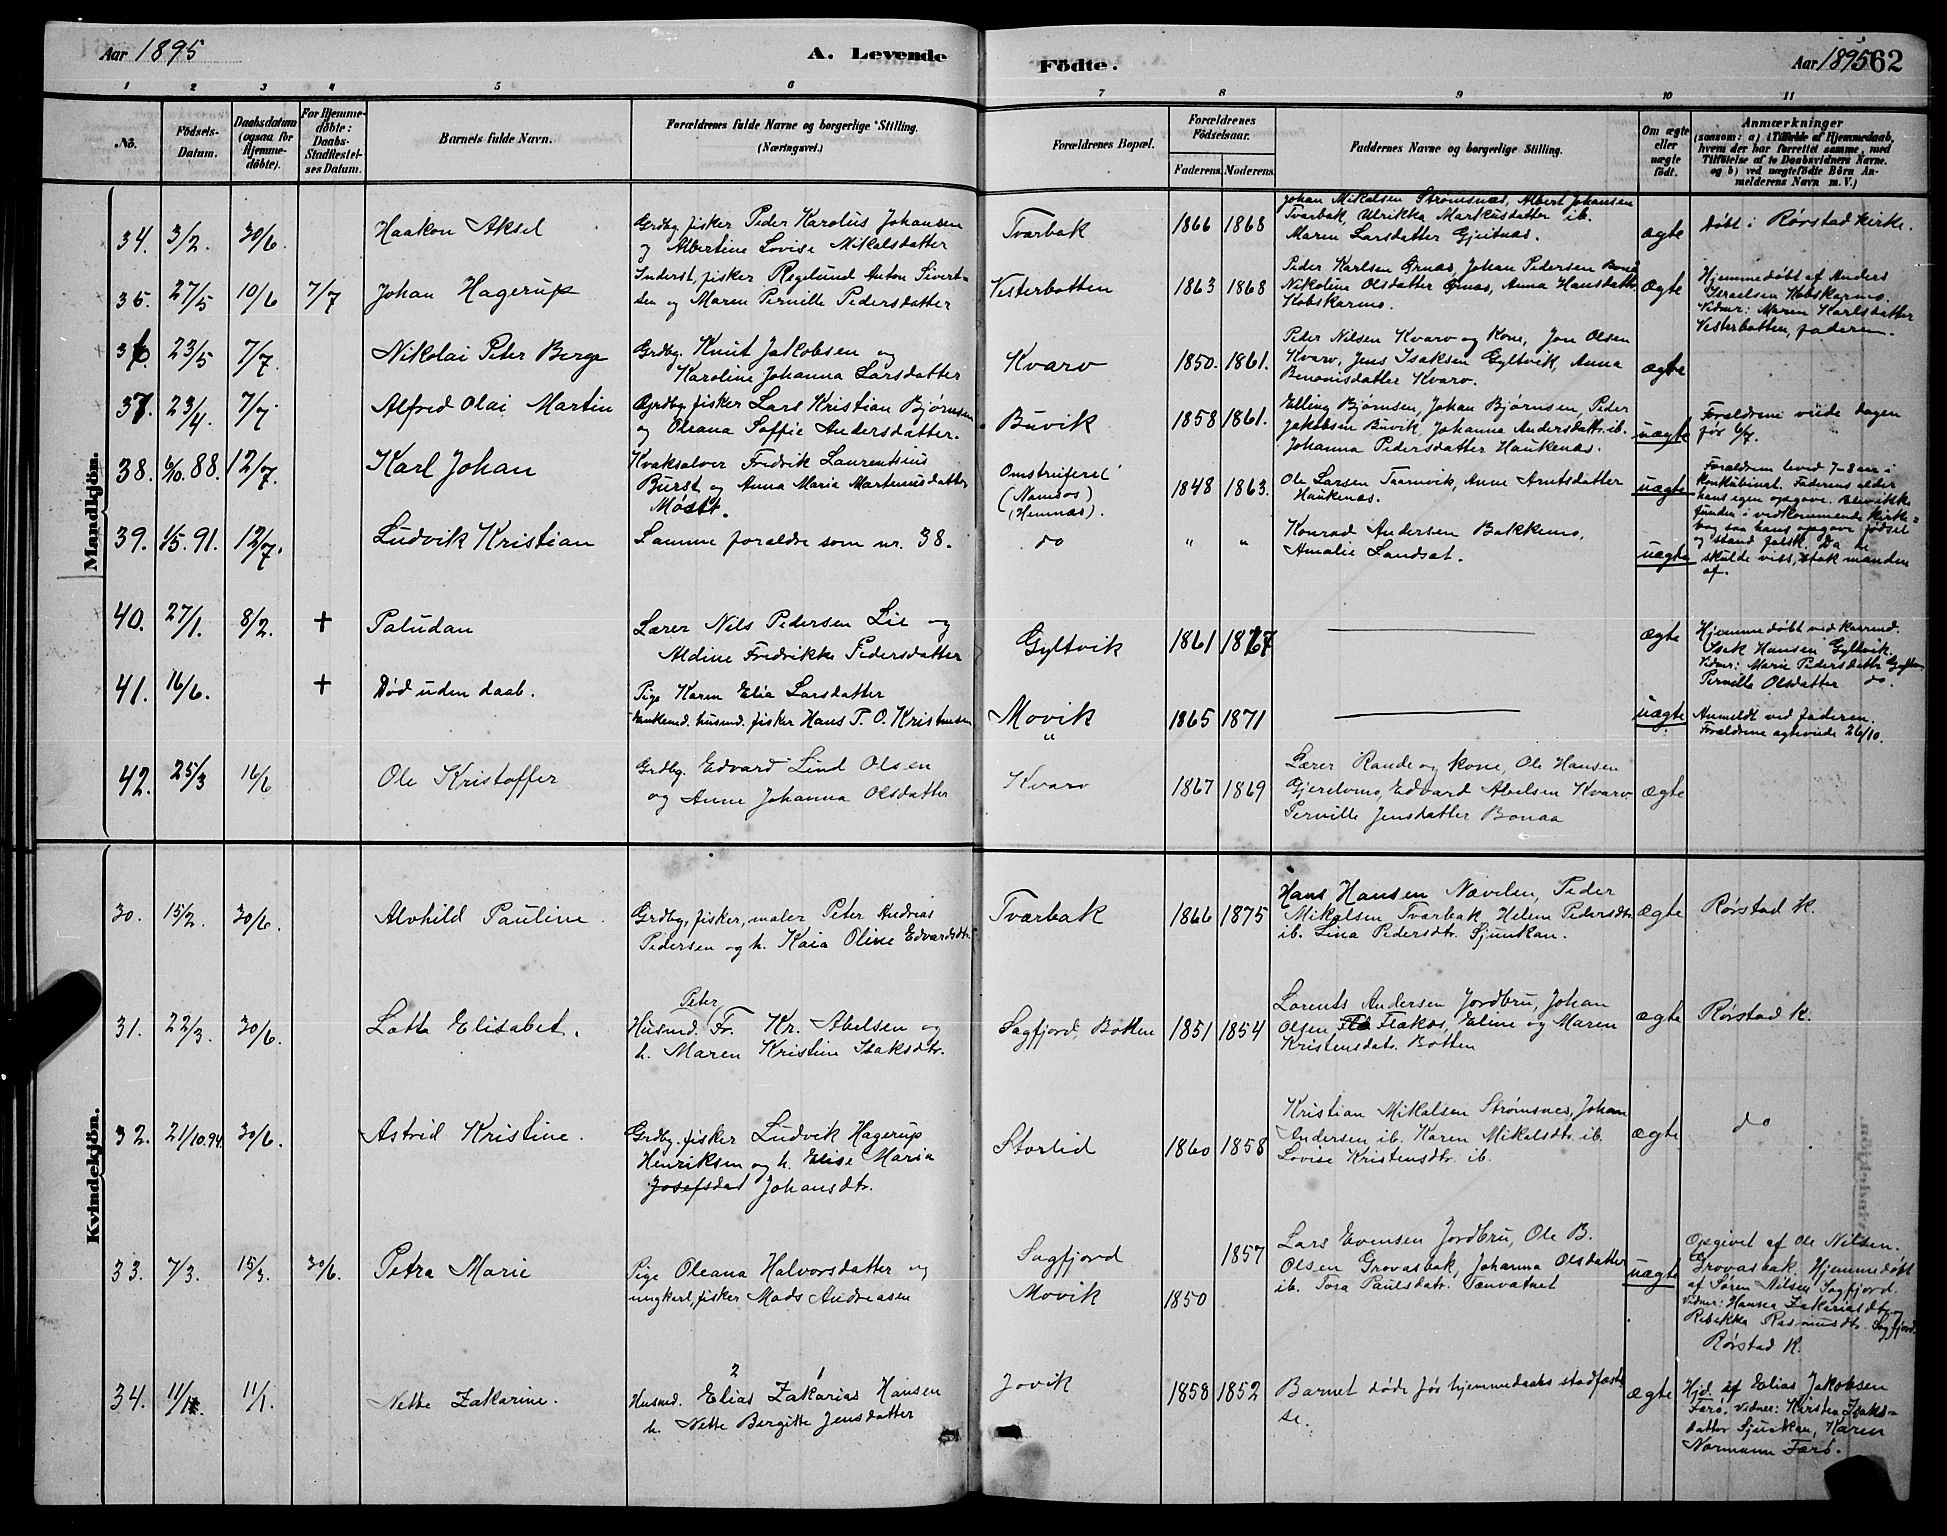 Aar 1895
A. Levende
Födte.
Aar 1895
62
1 2 3 4 5 6 7 8 9 10 11
No.
Födsels-
Datum.
Daabsdatum
(ogsaa for
Hjemme-
döbte).
For Hjemme-
döbte:
Daabs-
Stadfæstel-
ses Datum.
Barnets fulde Navn.
Forældrenes fulde Navne og borgerlige Stilling.
(Næringsvei.)
Forældrenes Bopæl.
Forældrenes
Födselsaar.
Faderens. Moderens.
Faddernes Navne og borgerlige Stilling.
Om ægte
eller
uægte
födt.
Anmærkninger
(saasom: a) i Tilfælde af Hjemmedaab,
hvem der har forrettet samme, med
Tilföielse af to Daabsvidners Navne.
og b) ved uægtefödte Börn An-
melderens Navn m. V.)
Mandkjön.
34. 3/2. 30/6. Haakon Aksel
Grdbg. fisker Peder Karolus Johansen
og Albertine Lovise Mikalsdatter
Tvarbak 1866 1868
Johan Mikalsen Strømsnæs, Albert Johansen
Tvarbak, Ulrikka Markusdatter ib.
Maren Larsdatter Gjeitnæs.
ægte
Døbt i Rørstad kirke.
35. 27/5 10/6 7/7 Johan Hagerup
Inderst, fisker Regelund Anton Sivert-
sen og Maren Pernille Pedersdatter
Vesterbotten 1863 1868
Peder Karlsen Grnæs, Johan Pedersen Bonå
Nikoline Olsdatter Grnæs, Anna Hansdatt.
Kobskarmo.
ægte
Hjemmedøbt af Anders
Israelsen Kobskarmo.
Vidner: Maren Karlsdatter
Vesterbotten, faderen.
36. 23/5 7/7. Nikolai Peter Berge
Grdbg. Knut Jakobsen og
Karoline Johanna Larsdatter
Kvarv 1850. 1861.
Peder Nilsen Kvarv og Kone, Jon Olsen
Kvarv, Jens Isaksen Gyltvik, Anna
Benonisdatter Kvarv.
ægte
37. 23/4. 7/7. Alfred Olai Martin
Grdbg. fisker Lars Kristian Bjørnsen
og Oleana Soffie Andersdatter.
Buvik 1858 1861.
Elling Bjørnsen, Johan Bjørnsen, Peder
Jakobsen Buvik, Johanna Andersdatt. ib.
Johanna Pedersdatter Haukenæs.
uægte
Forældrene viede dagen
før 6/7.
38. 6/10. 88. 12/7. Karl Johan
Kvaksalver Fredrik Laurentsius
Burst og Anna Maria Martemisdatter
Møstr.
Omstreiferi
(Namsos)
(Hemnæs).
1848 1863.
Ole Larsen Taarnvik, Anne Arntsdatter
Haukenæs.
uægte
Forældrene leved 7-8 aar i
konkubinat. Faderens alder
hans egen opgave. Blev ikke
funden i vedkommende kirke=
bog saa hans opgave fødsel
og stand falsk. Da de
skulde vies, stak manden
af.
39. 1/5. 91. 12/7. Ludvik Kristian
Samme forældre som nr. 38.
do " "
Konrad Andersen Bakkemo,
Amalie Landsat.
uægte
40. 27/1. 8/2. + Paludan
Lærer Nils Pedersen Lie og
Aldine Fredrikke Pedersdatter
Gyltvik 1861 1867
ægte
Hjemmedøbt ved
Isak Hansen Gyltvik.
Vidner: Marie Pedersdatter Gyltv.
Pernille Olsdatter do.
41. 16/6. + Død uden daab.
Pige Karen Elia Larsdatter
husmd. fisker Hans P. O. Kristensen
Movik
"
1865 1871
uægte
Anmeldt ved faderen.
Forældrene ægteviede 26/10.
42. 25/3 16/6 Ole Kristoffer
Grdbg. Edvard Lind Olsen
og Anne Johanna Olsdatter
Kvarv 1867 1869
Lærer Rande og kone, Ole Hansen
Gjerelvmo, Edvard Abelsen Kvarv
Pernille Jensdatter Bonaa
ægte
Kvindekjön.
30. 15/2. 30/6. Alvhild Pauline
Grdbg. fisker, maler Peter Andreas
Pedersen og h. Kaia Oline Edvardsdtr.
Tvarbak 1866 1875
Hans Hansen Nævelsn, Peder
Mikalsen Tvarbak, Helene Pedersdtr.
ib. Lina Pedersdtr. Sjunkan.
ægte
Rørstad K.
31. 22/3. 30/6. Latta Elisabet.
Peter
Husmd. Fr. Kr. Abelsen og
h. Maren Kristine Isaksdtr.
Sagfjord, Botten 1851 1854
Lorents Andersen Jordbru, Johan
Olsen Flakos, Eline og Maren
Kristensdatr. Botten
ægte
Rørstad K.
32. 21/10.94 30/6. Astrid Kristine.
Grdbg. fisker Ludvik Hagerup
Henriksen og h. Elise Maria
Josefsdat Johansdtr.
Storlid 1860 1858
Kristian Mikalsen Strømsnes, Johan
Andersen ib. Karen Mikalsdtr. ib.
Lovise Kristensdtr. ib.
ægte
do
33. 7/3. 15/3. 30/6. Petra Marie
Pige Oleana Halvorsdatter og
ungkarl, fisker Mads Andreasen
Sagfjord 1857
Movik 1850
Lars Evensen Jordbru, Ole B.
Olsen Grovasbak, Johanna Olsdatter
ib. Tora Paulsdatr. Tennvatnet
uægte
Opgivet af Ole Nilsen.
Grovasbak. Hjemmedøbt
af Søren Nilsen Sagfjord.
Vidner: Hansea Zakariasdtr. og
Rebekka Rasmusdtr. Sagfjord.
Rørstad K.
34. 11/1. 11/1. Nette Zakarine.
2 1
Husmd. Elias Zakarias Hansen
h. Nette Birgitte Jensdatter
Jovik 1858 1852
Barnet døde før hjemmedaabs stadfæst-
se.
ægte
Hjd. af Elias Jakobsen
Færø. Vidner: Kirsten Isaks=
datter Sjunkan, Karen
Normann Færø.